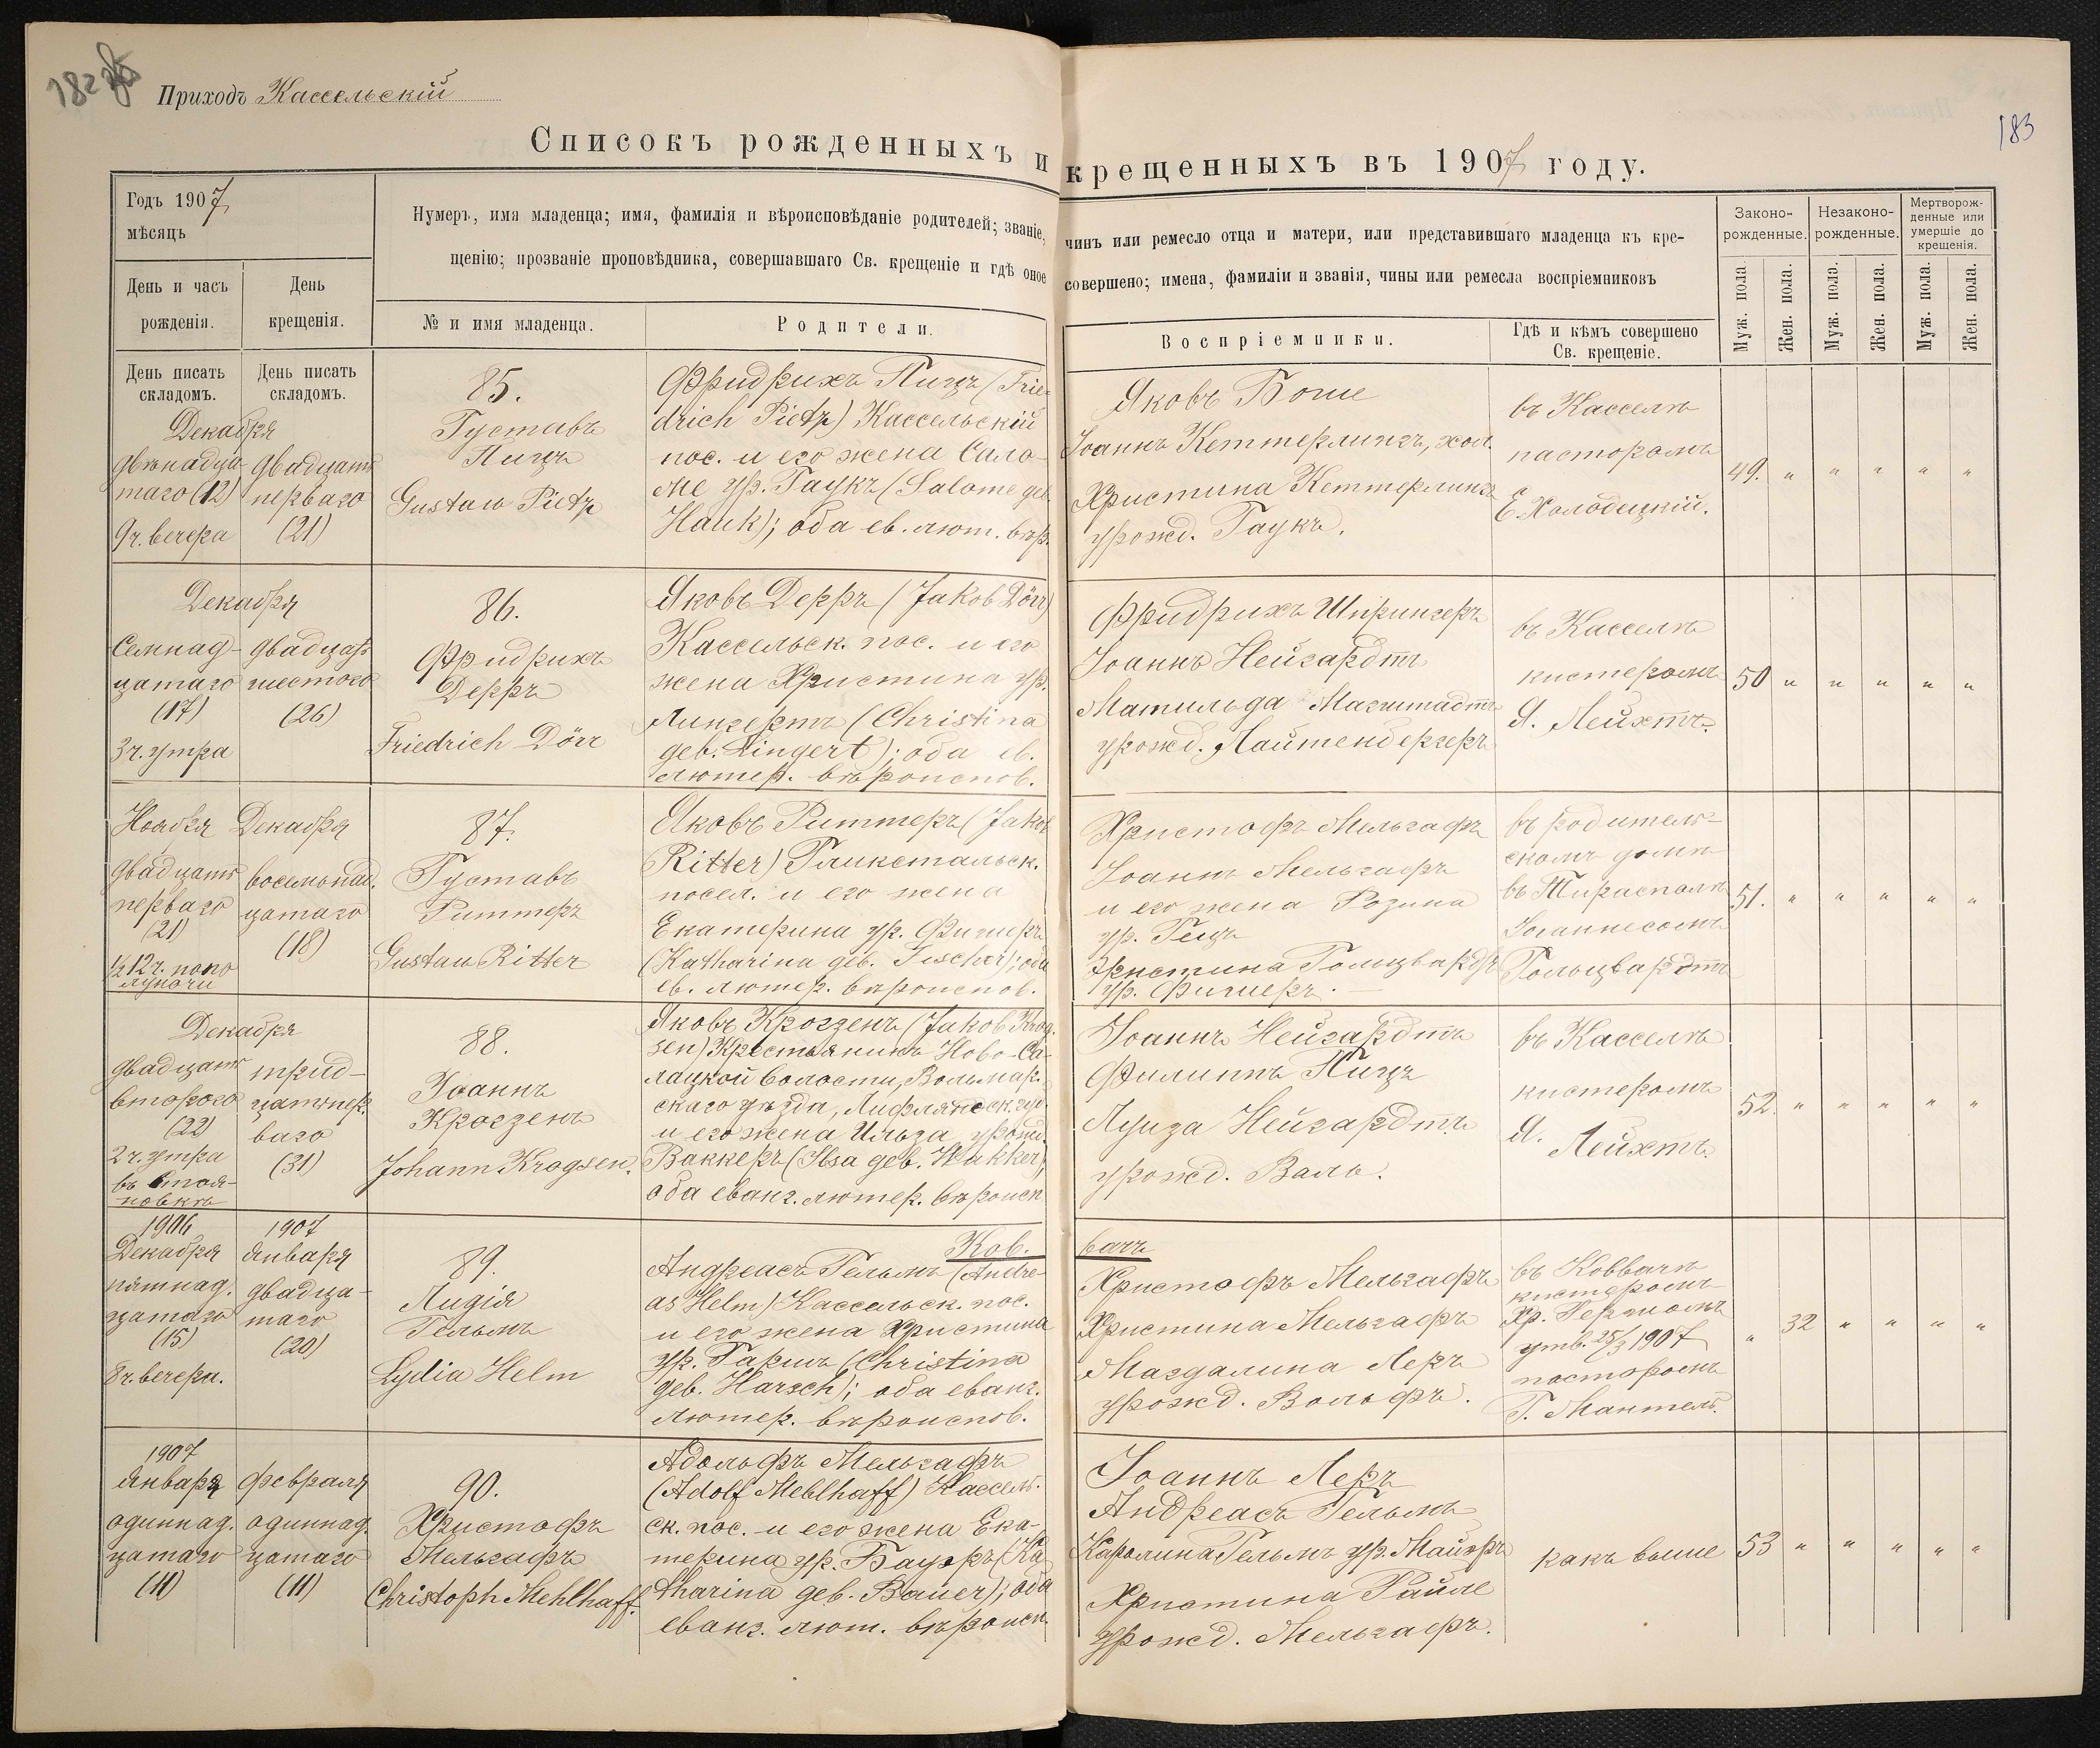 182
Приходъ Кассельскій
183
Списокъ рожденныхъ и крещенныхъ въ 1907 году.
Годъ 1907
мѣсяцъ
Нумеръ, имя младенца; имя, фамилія и вѣроисповѣданіе родителей; званіе, чинъ или ремесло отца и матери, или представившаго младенца къ кре-
щенію; прозваніе проповѣдника, совершавшаго Св. крещеніе и гдѣ оное совершено; имена, фамиліи и званія, чины или ремесла воспріемниковъ
Законо-
рожденные.
Незаконо-
рожденные.
Мертворож-
денные или
умершіе до
крещенія.
День и часъ
рожденія.
День
крещенія.
№ и имя младенца.
Родители.
Воспріемники.
Гдѣ и кѣмъ совершено
Св. крещеніе.
Муж. пола.
Жен. пола.
Муж. пола.
Жен. пола.
Муж. пола.
Жен. пола.
День писать
складомъ.
День писать
складомъ.
Декабря
двѣнадца-
таго (12)
9 ч. вечера
двадцать
перваго
(21)
85.
Густавъ
Пицъ
Gustaw Pietz
Фридрихъ Пицъ (Frie-
drich Pietz) Кассельскій
пос. и его жена Сало-
ме ур. Гаукъ (Salome geb.
Hauk); оба ев. лют. вѣр.
Яковъ Боше
Іоаннъ Кеттерлингъ, хол.
Христина Кеттерлингъ
урожд. Гаукъ.
въ Касселѣ
пасторомъ
Е. Холодецкій.
49. " " " " "
Декабря
семнад-
цатаго
(17)
3 ч. утра
двадцать
шестого
(26)
86.
Фридрихъ
Дерръ
Friedrich Dörr
Яковъ Дерръ (Jakob Dörr)
Кассельск. пос. и его
жена Христина ур.
Лингертъ (Christina
geb. Lingert); оба ев.
лютер. вѣроиспов.
Фридрихъ Шпрингеръ
Іоаннъ Нейгардтъ
Матильда Магштадтъ
урожд. Лайтенбергеръ
въ Касселѣ
кистеромъ
Я. Лейхтъ.
50 " " " " "
Ноября
двадцать
перваго
(21)
½12 ч. попо
луночи
Декабря
восемьнад.
цатаго
(18)
87.
Густавъ
Риттеръ
Gustaw Ritter
Яковъ Риттеръ (Jakob
Ritter) Гликстальск.
посел. и его жена
Екатерина ур. Фишеръ
(Katharina geb. Fischer); оба
ев. лютер. вѣроиспов.
Христофъ Мельгафъ
Іоаннъ Мельгафъ
и его жена Розина
ур. Гецъ
Христина Гольцвардтъ
ур. Фишеръ.
въ родитель-
скомъ домѣ
въ Тирасполѣ
Іоаннесомъ
Гольцвардтъ
51. " " " " "
Декабря
двадцать
второго
(22)
2 ч. утра
въ Стоя-
новкѣ
трид-
цать пер.
ваго
(31)
88.
Іоаннъ
Крогзенъ
Johann Krogsen.
Яковъ Крогзенъ (Jakob Krog-
sen) Крестьянинъ Ново-Са-
лацкой волости, Вольмар.
скаго уѣзда, Лифляндск. губ.
и его жена Ильза урожд.
Ваккеръ (Ilsa geb. Wakker);
оба еванг. лютер. вѣроисп
Іоаннъ Нейгардтъ
Филиппъ Пицъ
Луиза Нейгардтъ
урожд. Валь.
въ Касселѣ
кистеромъ
Я. Лейхтъ.
52. " " " " "
Ков. вачъ
1906
Декабря
пятнад.
цатаго
(15)
8 ч. вечера.
1907
Января
двадца-
таго
(20)
89.
Лидія
Гельмъ
Lydia Helm
Андреасъ Гельмъ (Andre-
as Helm) Кассельск. пос.
и его жена Христина
ур. Гаршъ (Christina
geb. Harsch); оба еванг.
лютер. вѣроиспов.
Христофъ Мельгафъ
Христина Мельгафъ
Магдалина Леръ
урожд. Вольфъ.
въ Ковачѣ
кистеромъ
утв. 25/3 1907
пасторомъ
Г. Мантель.
" 32 " " " "
1907
Января
одиннад.
цатаго
(11)
Февраля
одиннад.
цатаго
(11)
90.
Христофъ
Мельгафъ
Christoph Mehlhaff.
Адольфъ Мельгафъ
(Adolf Mehlhaff) Кассель.
ск. пос. и его жена Ека-
терина ур. Бауэръ (Ka
tharina geb. Bauer); оба
еванг. лют. вѣроисп.
Іоаннъ Леръ
Андреасъ Гельмъ
Каролина Гельмъ ур. Майеръ
Христина Райле
урожд. Мельгафъ.
какъ выше
53 " " " " "